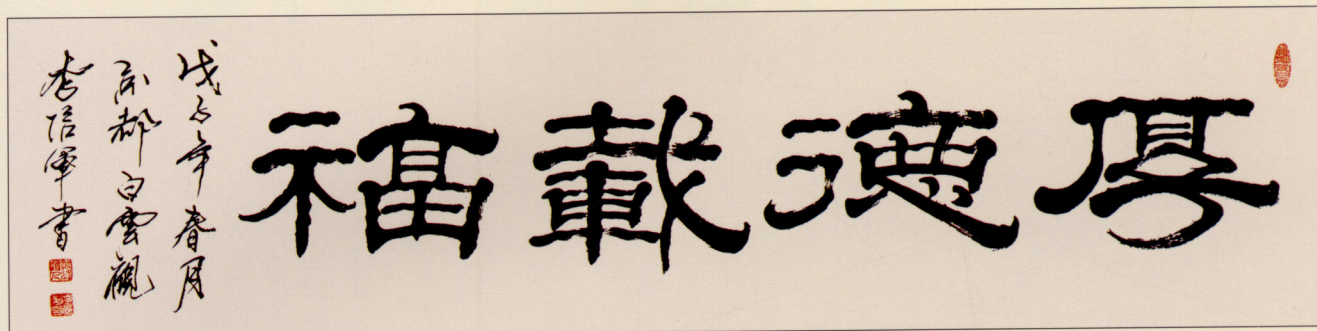 厚德載福
戊子年春月
京都白雲觀
李信軍書